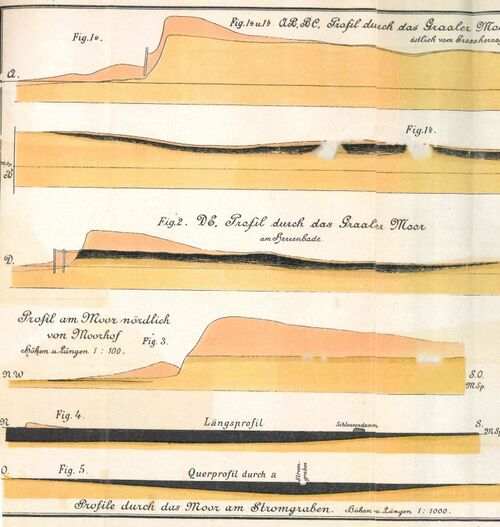 Fig. 1a.
Fig. 1a u 1b AB, BC, Profil durch das Graaler Mo
östlich vom Grossherzo
A.
Fig. 1b.
M.Sp.
B
Fig. 2. DE, Profil durch das Graaler Moor
am Herrenbade.
D.
Profil am Moor nördlich
von Moorhof
Höhen u. Längen 1 : 100.
Fig. 3.
N.W
S.O.
M.Sp.
N
Fig. 4.
Längsprofil
Schleusendamm
S.
M.Sp
O.
Fig. 5.
Querprofil durch a
Strom-
graben
Profile durch das Moor am Stromgraben. Höhen u. Längen 1 : 1000.